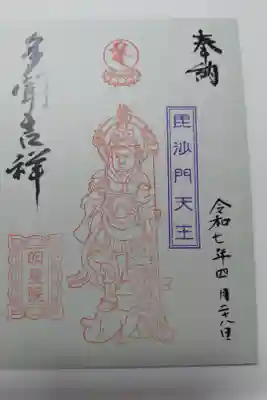 奉納
毘沙門天王
令和七年四月二八日
吉祥
明星院